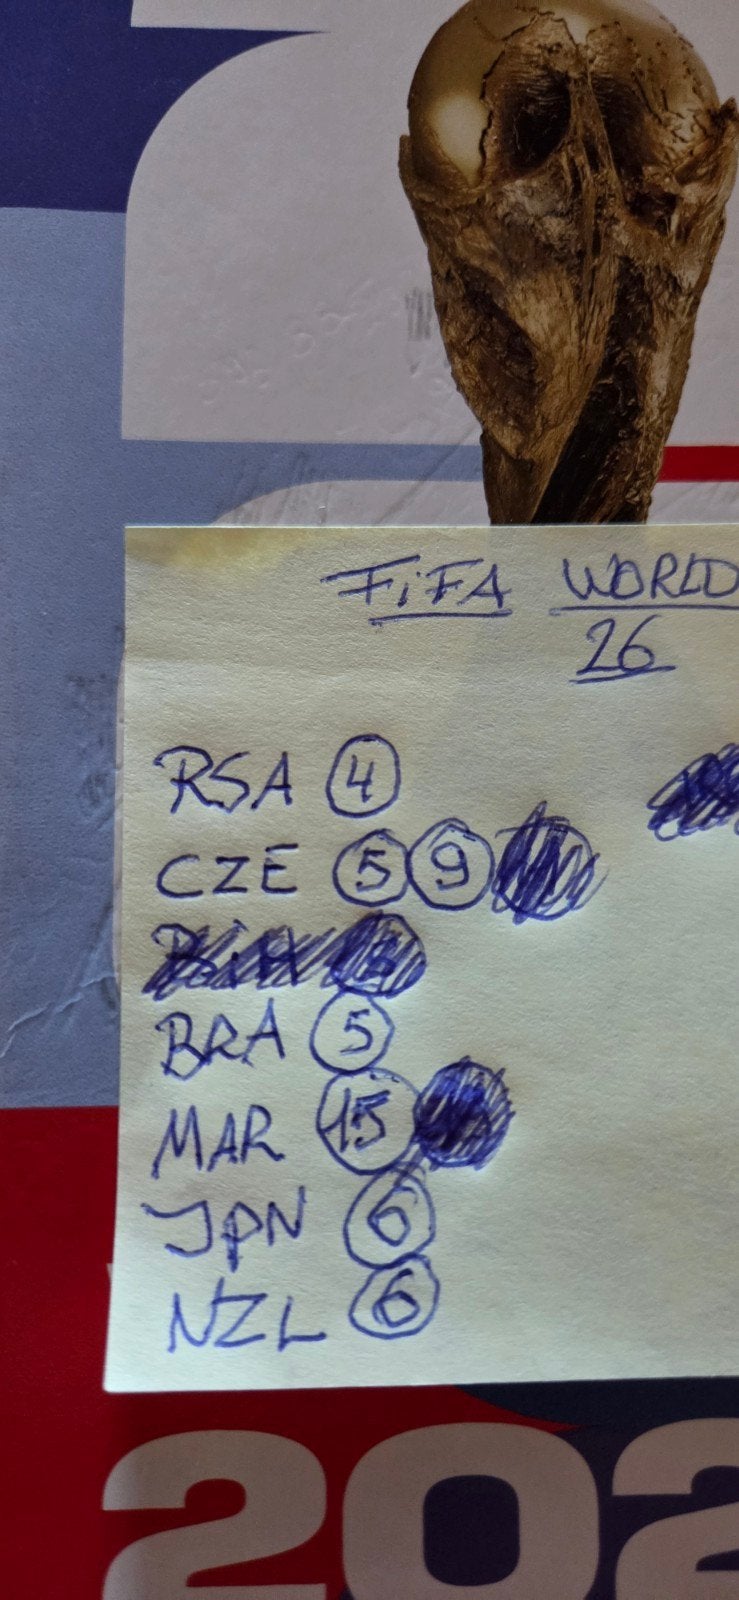 FiFA WORLD
26
RSA 4
CZE 5 9
BRA 5
MAR 15
JPN 6
NZL 6
202